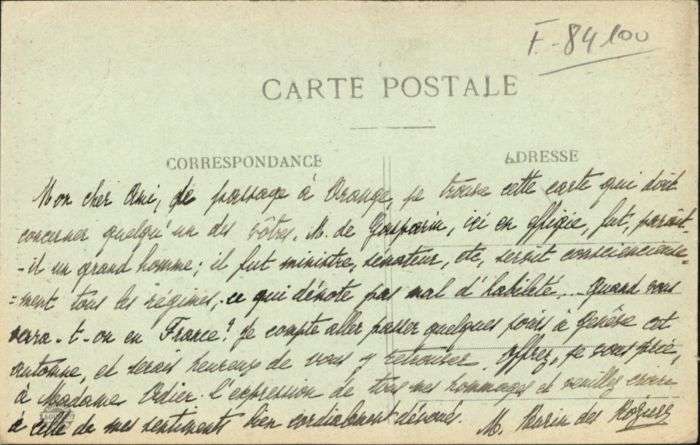 F-84100
CARTE POSTALE
CORRESPONDANCE
ADRESSE
Mon cher Ami, de passage à Orange, je trouve cette carte qui doit
concerner quelqu'un des vôtres. M. de Gasparin, ici en effigie, fut, paraît-
-il un grand homme ; il fut ministre, sénateur, etc, servit consciencieuse-
=ment tous les régimes, ce qui dénote pas mal d'habileté... Quand vous
verra-t-on en France ? Je compte aller passer quelques jours à Genève cet
automne, et serais heureux de vous y retrouver. Offrez, je vous prie,
à Madame Odier l'expression de tous mes hommages et veuillez croire
à celle de mes sentiments bien cordialement dévoué. M. des